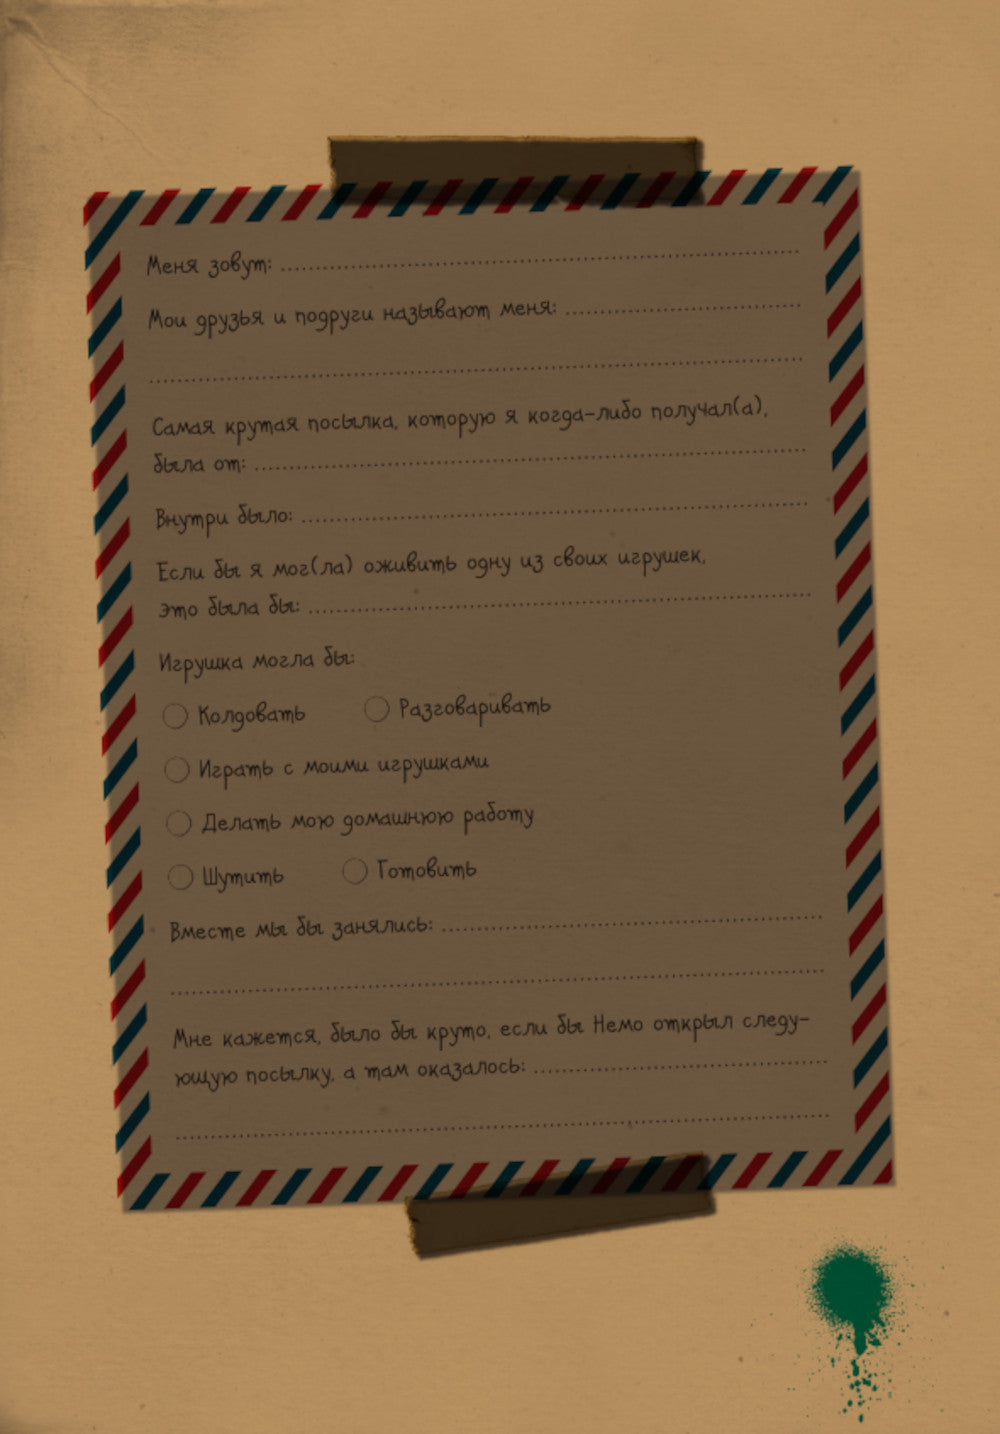 Меня зовут:
Мои друзья и подруги называют меня:
Самая крутая посылка, которую я когда-либо получал(а),
была от:
Внутри было:
Если бы я мог(ла) оживить одну из своих игрушек,
это была бы:
Игрушка могла бы:
Колдовать Разговаривать
Играть с моими игрушками
Делать мою домашнюю работу
Шутить Готовить
Вместе мы бы занялись:
Мне кажется, было бы круто, если бы Немо открыл следу-
ющую посылку, а там оказалось: